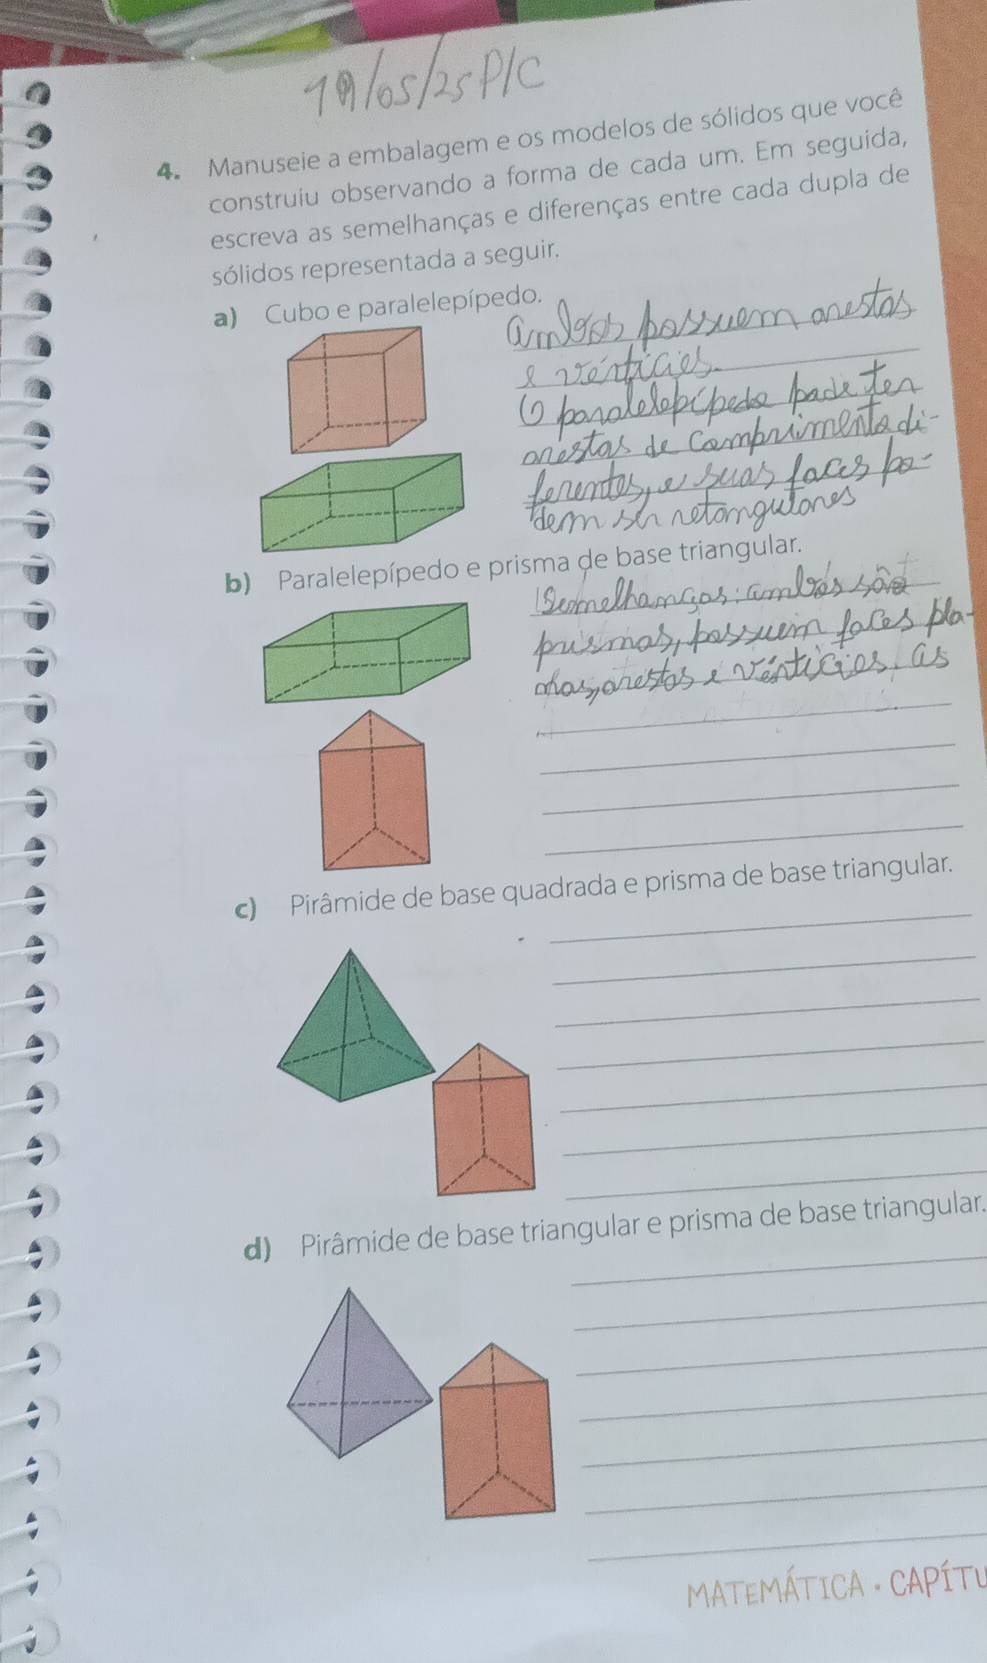 19/05/25 P/C
4. Manuseie a embalagem e os modelos de sólidos que você
construiu observando a forma de cada um. Em seguida,
escreva as semelhanças e diferenças entre cada dupla de
sólidos representada a seguir.
a) Cubo e paralelepípedo.
ambos possuem arestas
e vértícies.
O paralelepípedo pode ter
arestas de comprimento di-
ferentes, e suas faces po-
dem ser retangulares
b) Paralelepípedo e prisma de base triangular.
Semelhanças: ambos são
prismas, possuem faces pla-
nas, arestas e vértícies. as
c) Pirâmide de base quadrada e prisma de base triangular.
d) Pirâmide de base triangular e prisma de base triangular.
MATEMÁTICA · CAPÍTU